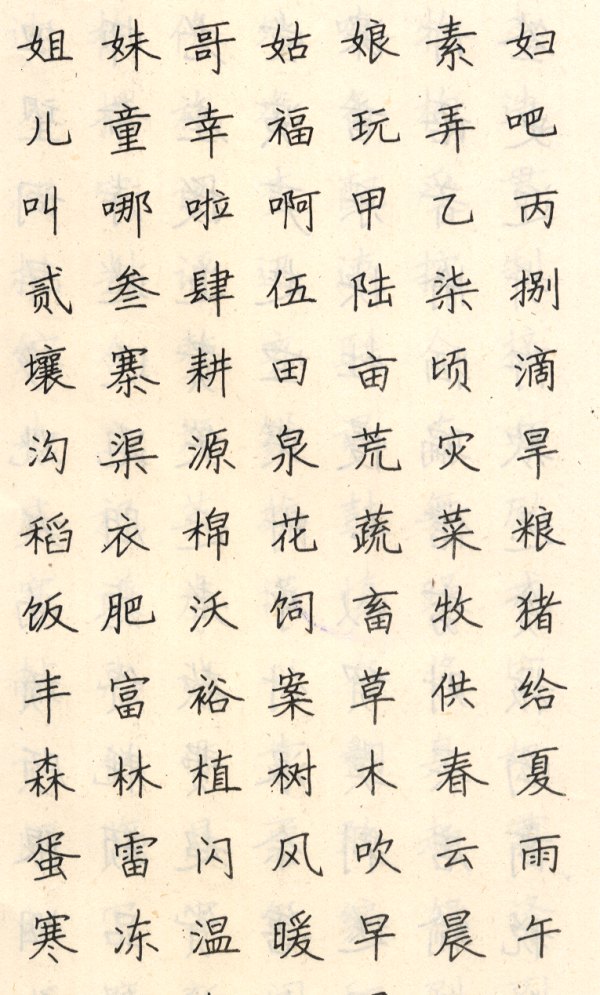 姐妹哥姑娘素妇
儿童幸福玩弄吧
叫哪啦啊甲乙丙
贰叁肆伍陆柒捌
壤寨耕田亩顷滴
沟渠源泉荒灾旱
稻衣棉花蔬菜粮
饭肥沃饲畜牧猪
丰富裕案草供给
森林植树木春夏
蛋雷闪风吹云雨
寒冻温暖早晨午